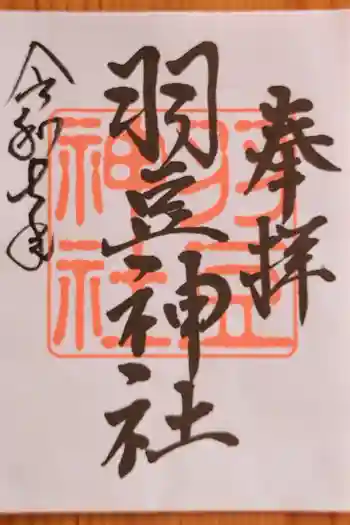 奉拝
羽豆神社
令和七年
羽豆神社